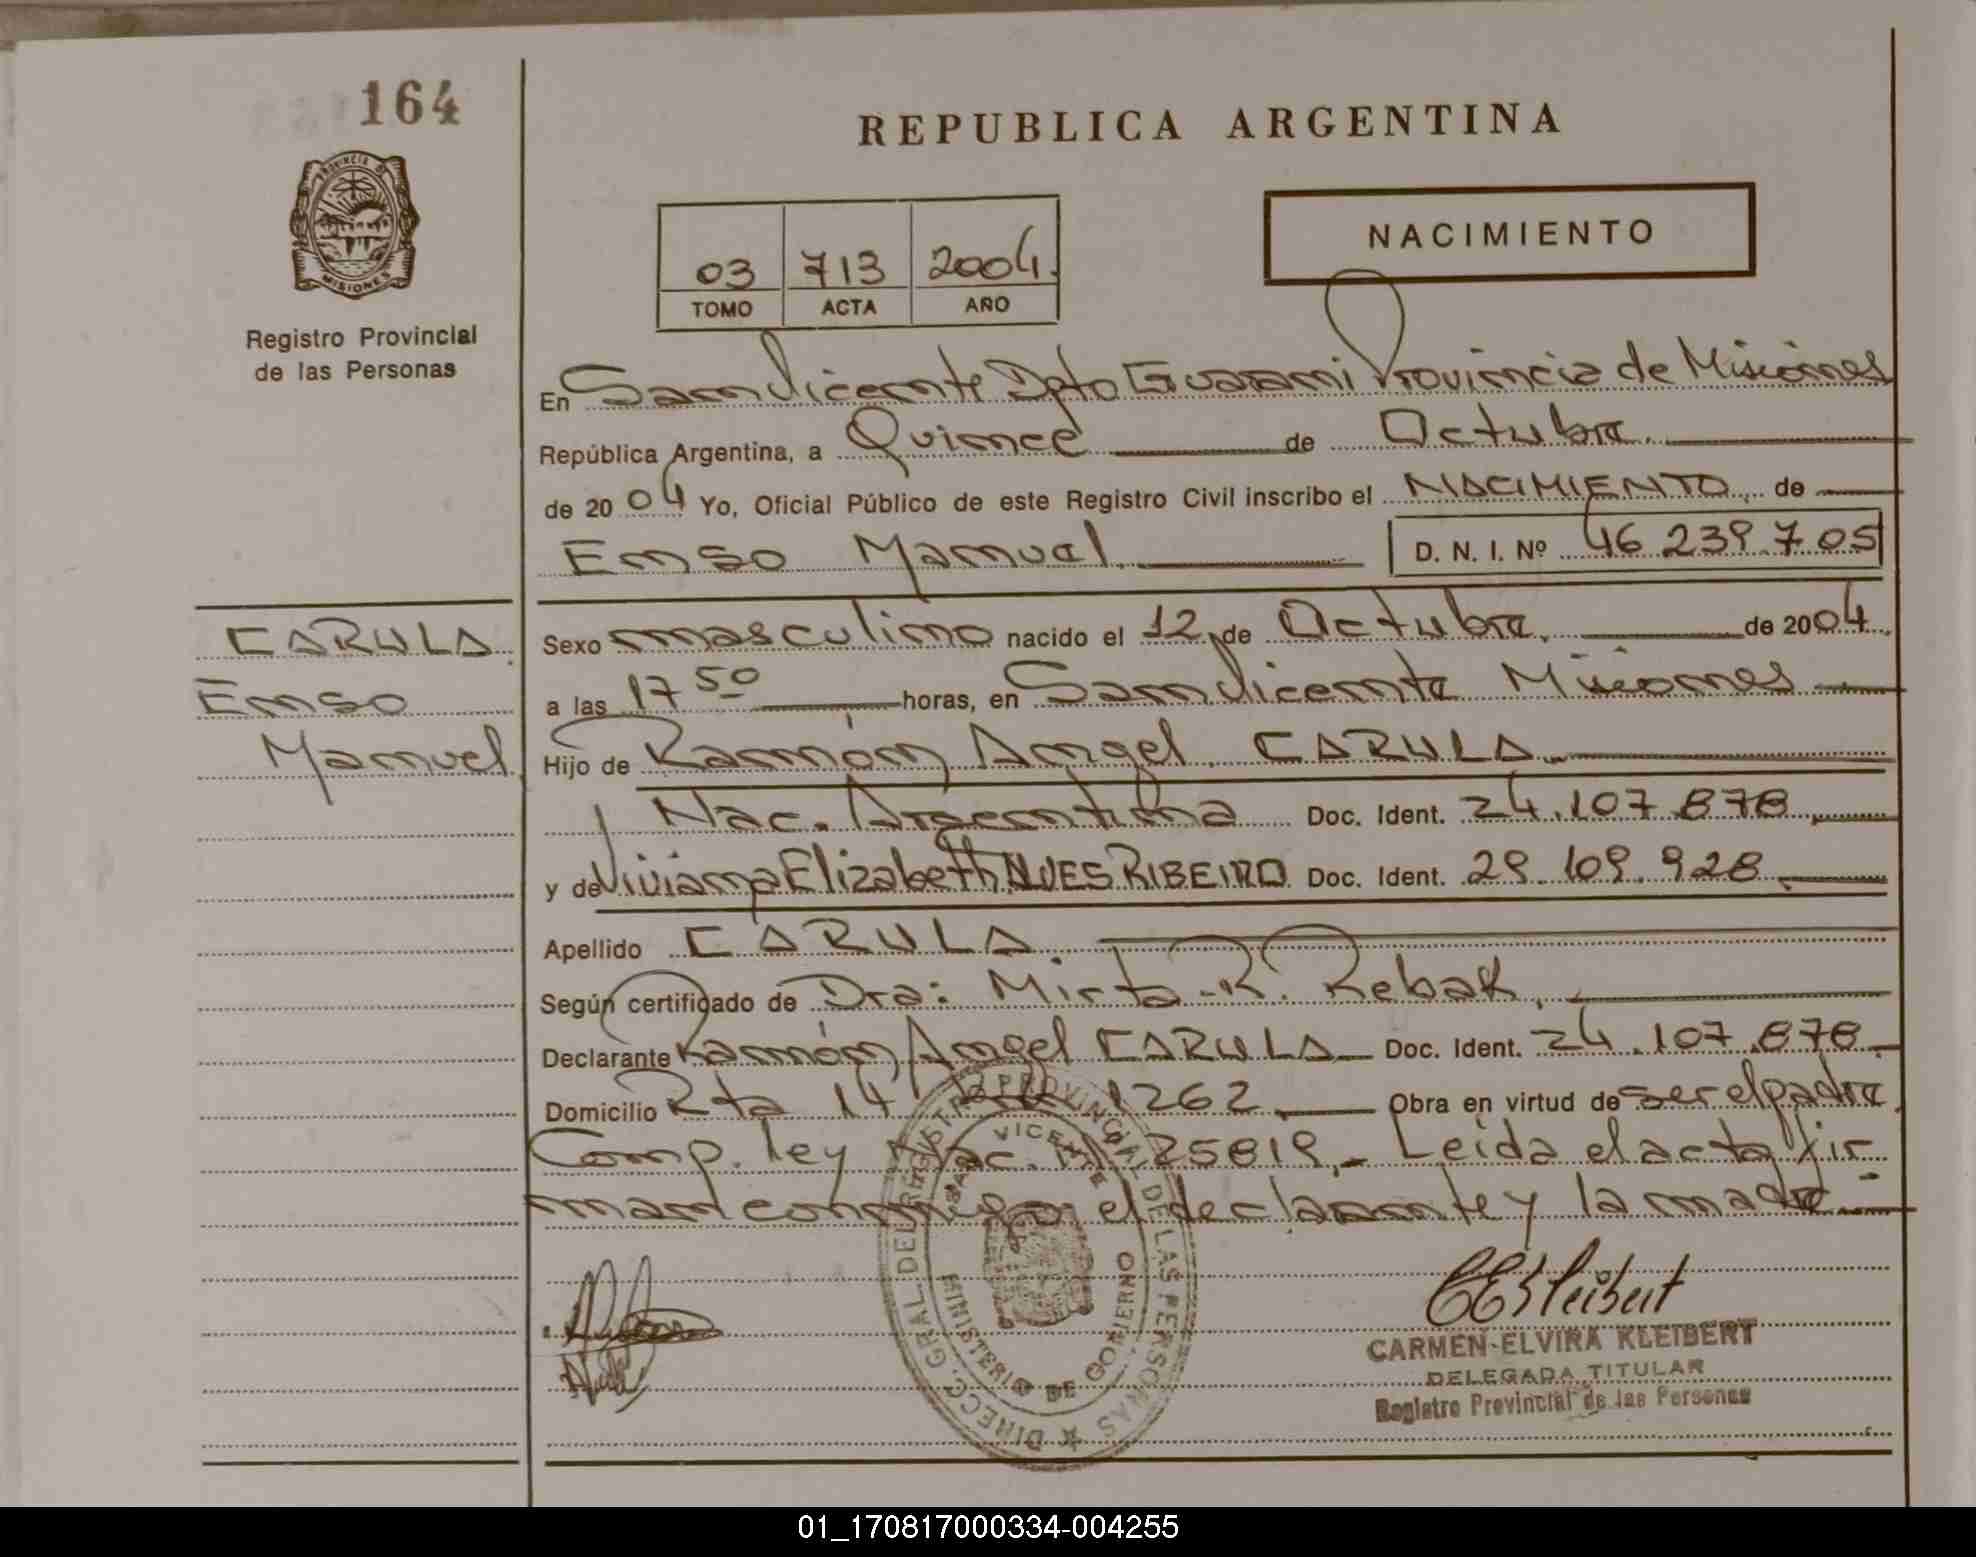 164
REPUBLICA ARGENTINA
NACIMIENTO
03 713 2004.
TOMO ACTA AÑO
PROVINCIA DE
MISIONES
Registro Provincial
de las Personas
En San Vicente Dpto Guaraní Provincia de Misiones
República Argentina, a Quince de Octubre.
de 2004 Yo, Oficial Público de este Registro Civil inscribo el NACIMIENTO de
Enso Manuel. D. N. I. Nº 46 239.705
CARULA.
Enso
Manuel.
Sexo masculino nacido el 12 de Octubre. de 2004.
a las 17 50 horas, en San Vicente Misiones
Hijo de Ramón Angel CARULA
Nac. Argentina Doc. Ident. 24.107.878
y de Viviana Elizabeth ALVES RIBEIRO Doc. Ident. 29.109.928
Apellido CARULA
Según certificado de Dra: Mirta R. Rebak.
Declarante Ramón Angel CARULA Doc. Ident. 24.107.878
Domicilio Rta 14 1262 Obra en virtud de ser el padre.
Comp. ley Nac. Nº 25819.- Leída el acta fir
man conmigo el declarante y la madre.-
DIRECC. GRAL. DEL REGISTRO PROVINCIAL DE LAS PERSONAS
SAN VICENTE
MINISTERIO DE GOBIERNO
CEKleibert
CARMEN ELVIRA KLEIBERT
DELEGADA TITULAR
Registro Provincial de las Personas
01_170817000334-004255